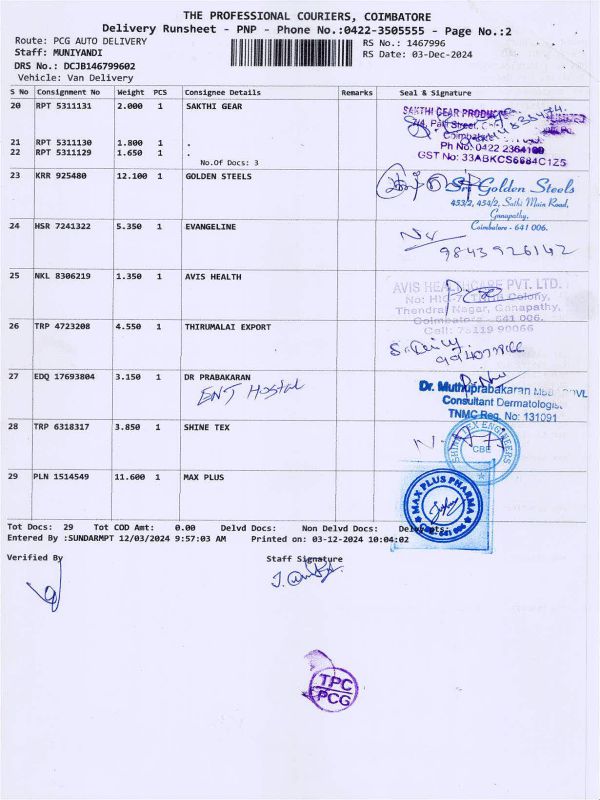 THE PROFESSIONAL COURIERS, COIMBATORE
Delivery Runsheet - PNP - Phone No.:0422-3505555 - Page No.:2
Route: PCG AUTO DELIVERY
RS No.: 1467996
Staff: MUNIYANDI
RS Date: 03-Dec-2024
DRS No.: DCJB146799602
Vehicle: Van Delivery
S No Consignment No Weight PCS Consignee Details Remarks Seal & Signature
20 RPT 5311131 2.000 1 SAKTHI GEAR
SAKTHI GEAR PRODUCTS
Coimbatore
21 RPT 5311130 1.800 1 .
Ph No: 0422 2364100
22 RPT 5311129 1.650 1 .
GST No: 33ABKCS6684C1Z5
No.Of Docs: 3
23 KRR 925480 12.100 1 GOLDEN STEELS
Sri Golden Steels
453/2, 454/2, Sathi Main Road,
Ganapathy,
Coimbatore - 641 006.
24 HSR 7241322 5.350 1 EVANGELINE
9843926142
25 NKL 8306219 1.350 1 AVIS HEALTH
AVIS HEALTHCARE PVT. LTD.
Colony,
Thendral Nagar, Ganapathy,
Coimbatore - 641 006.
Cell: 75119 90066
26 TRP 4723208 4.550 1 THIRUMALAI EXPORT
27 EDQ 17693804 3.150 1 DR PRABAKARAN
ENT Hostal
Dr. Muthuprabakaran MBBS DDVL
Consultant Dermatologist
TNMC Reg. No: 131091
28 TRP 6318317 3.850 1 SHINE TEX
SHINE TEX ENGINEERS
CBE
29 PLN 1514549 11.600 1 MAX PLUS
MAX PLUS PHARMA
CBE-641 006
Tot Docs: 29 Tot COD Amt: 0.00 Delvd Docs: Non Delvd Docs:
Entered By :SUNDARMPT 12/03/2024 9:57:03 AM Printed on: 03-12-2024 10:04:02
Verified By
Staff Signature
TPC
PCG